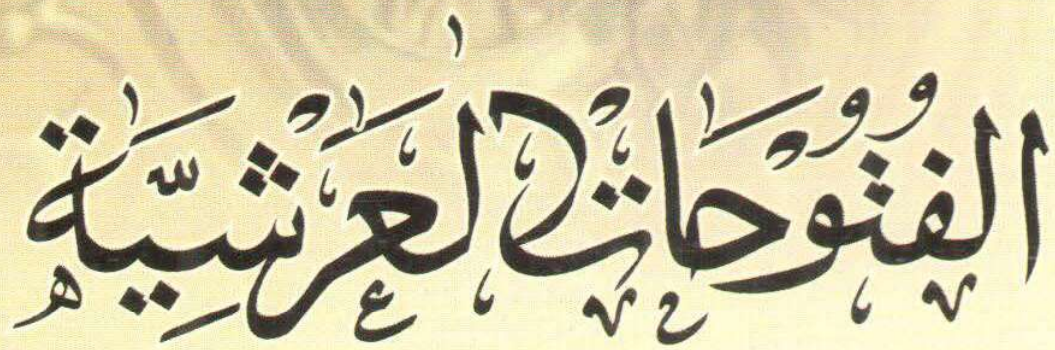 الفُتُوحَاتُ العَرْشِيَّة